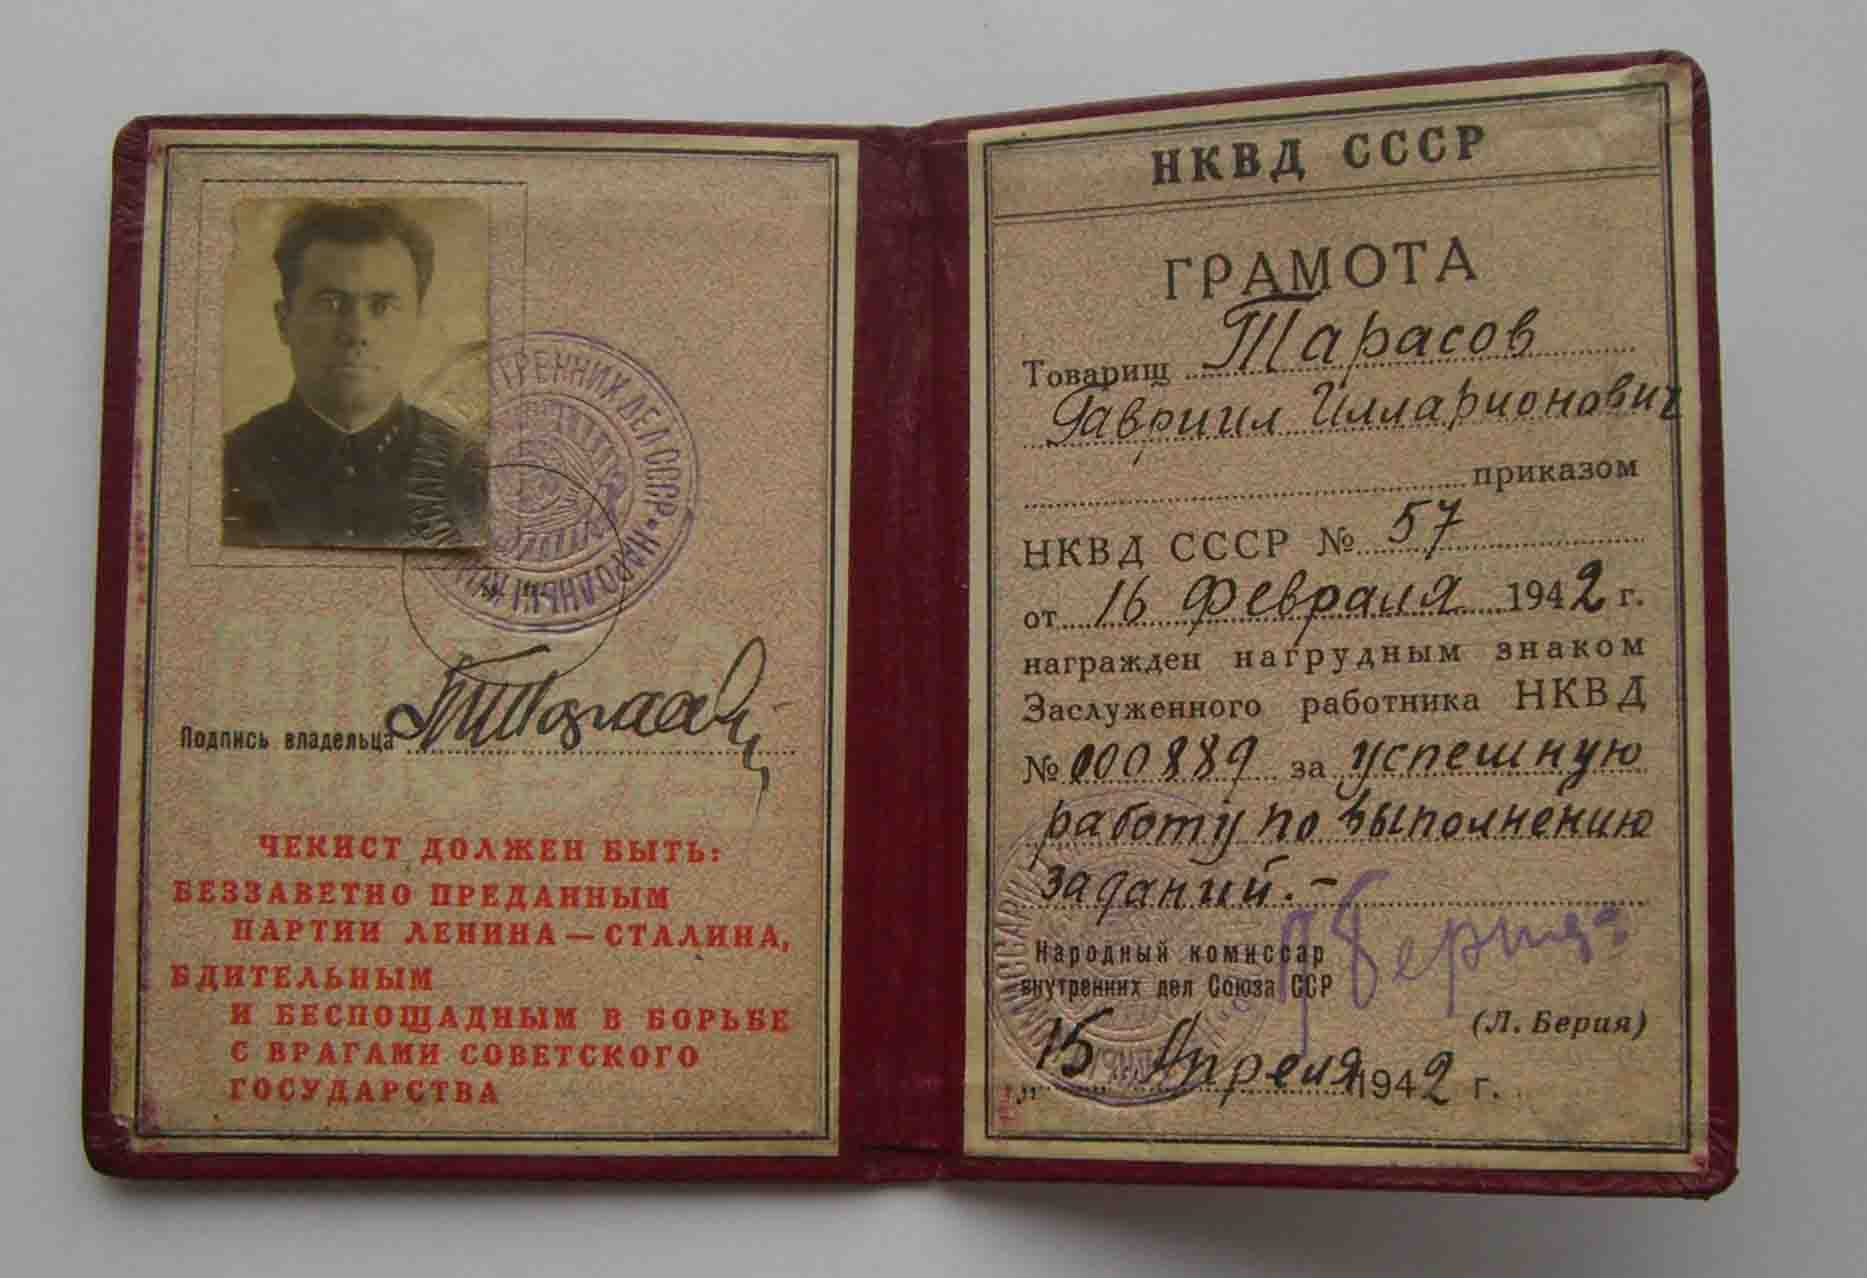 ВНУТРЕННИХ ДЕЛ СССР • НАРОДНЫЙ
Подпись владельца
ЧЕКИСТ ДОЛЖЕН БЫТЬ:
БЕЗЗАВЕТНО ПРЕДАННЫМ
ПАРТИИ ЛЕНИНА — СТАЛИНА,
БДИТЕЛЬНЫМ
И БЕСПОЩАДНЫМ В БОРЬБЕ
С ВРАГАМИ СОВЕТСКОГО
ГОСУДАРСТВА
НКВД СССР
ГРАМОТА
Товарищ Тарасов
Гавриил Илларионович
приказом
НКВД СССР № 57
от 16 Февраля 1942 г.
награжден нагрудным знаком
Заслуженного работника НКВД
№ 000889 за успешную
работу по выполнению
заданий.-
Народный комиссар
внутренних дел Союза ССР
Л Берия
(Л. Берия)
„15" Апреля 1942 г.